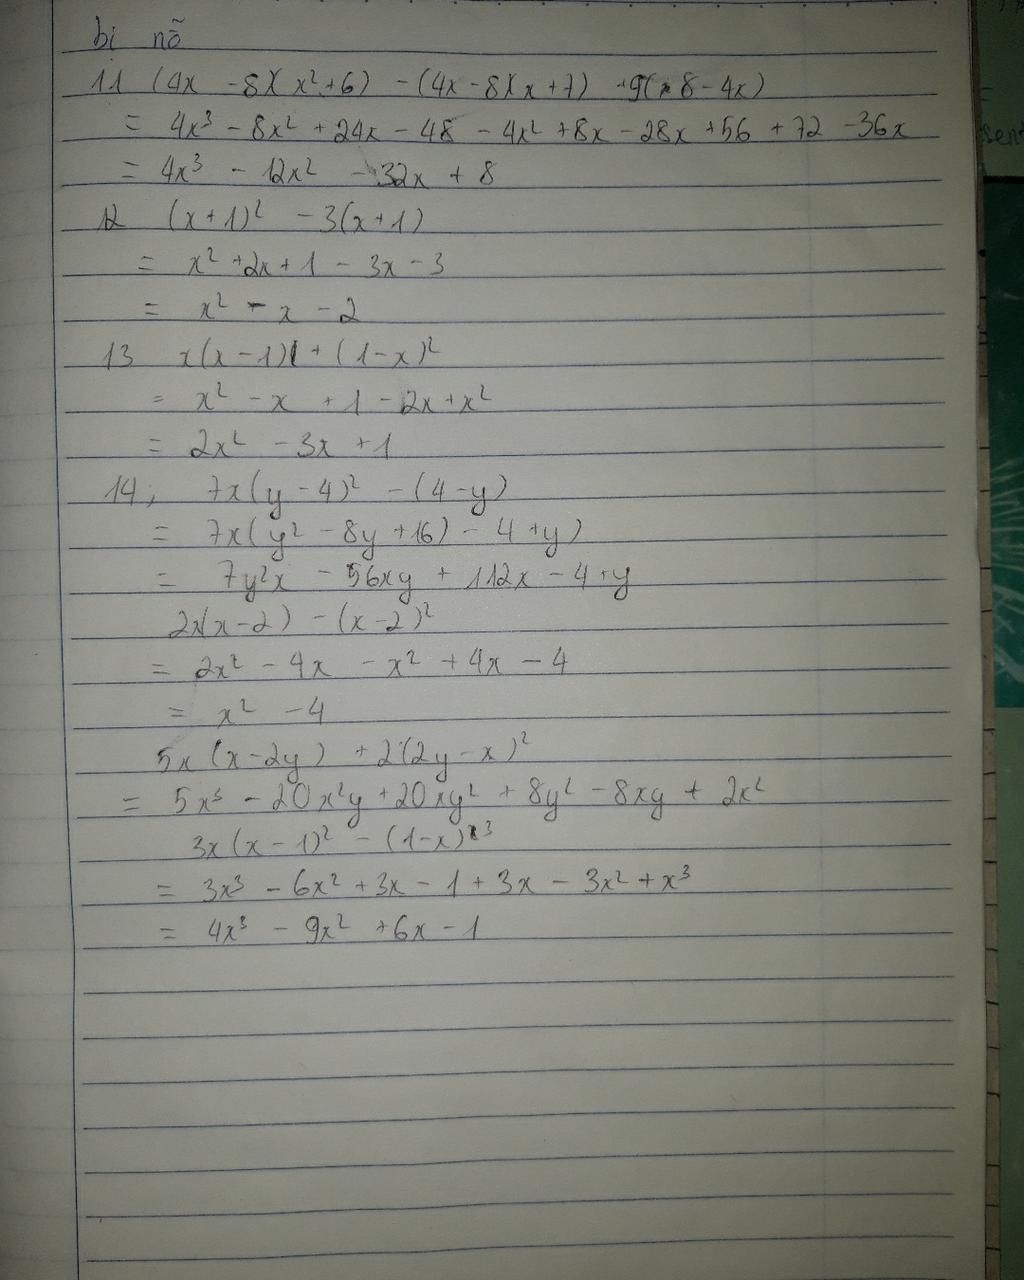 bị nõ
11 (4x - 8)(x² + 6) - (4x - 8)(x + 7) + 9(8 - 4x)
= 4x³ - 8x² + 24x - 48 - 4x² + 8x - 28x + 56 + 72 - 36x
= 4x³ - 12x² - 32x + 8
12 (x + 1)² - 3(x + 1)
= x² + 2x + 1 - 3x - 3
= x² - x - 2
13 x(x - 1) + (1 - x)²
= x² - x + 1 - 2x + x²
= 2x² - 3x + 1
14, 7x(y - 4)² - (4 - y)
= 7x(y² - 8y + 16) - 4 + y)
= 7y²x - 56xy + 112x - 4 + y
2x(x - 2) - (x - 2)²
= 2x² - 4x - x² + 4x - 4
= x² - 4
5x(x - 2y) + 2(2y - x)²
= 5x³ - 20x²y + 20xy² + 8y² - 8xy + 2x²
3x(x - 1)² - (1 - x)³
= 3x³ - 6x² + 3x - 1 + 3x - 3x² + x³
= 4x³ - 9x² + 6x - 1